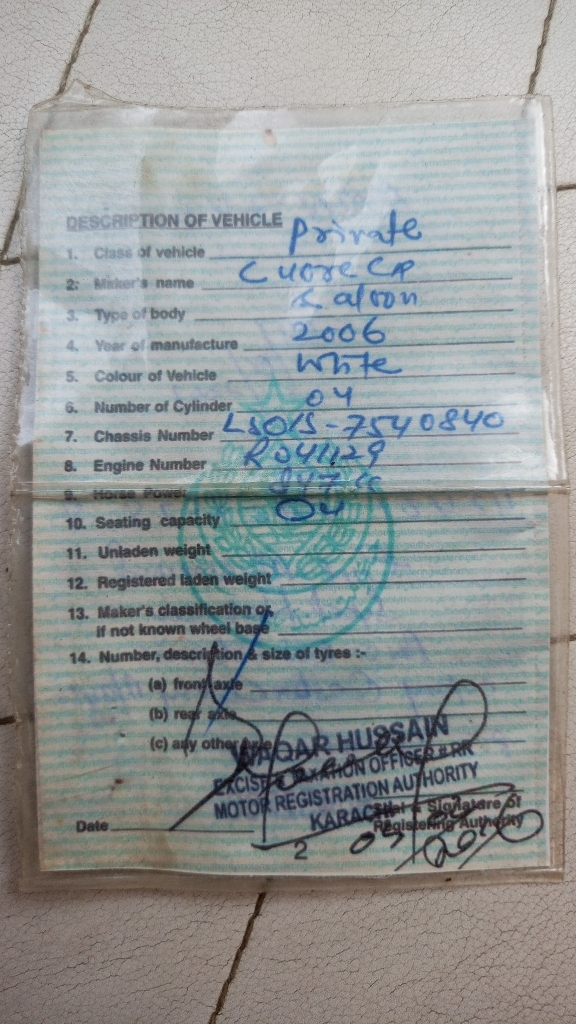 DESCRIPTION OF VEHICLE
1. Class of vehicle Private
2: Maker's name Cuore CP
3. Type of body Saloon
4. Year of manufacture 2006
5. Colour of Vehicle White
6. Number of Cylinder 04
7. Chassis Number L501S-7540840
8. Engine Number R041129
9. Horse Power 847 cc
10. Seating capacity 04
11. Unladen weight
12. Registered laden weight
13. Maker's classification or
if not known wheel base
14. Number, description & size of tyres :-
(a) front axle
(b) rear axle
(c) any other axle
WAQAR HUSSAIN
EXCISE & TAXATION OFFICER
MOTOR REGISTRATION AUTHORITY
KARACHI
Seal & Signature of
Registering Authority
Date
2